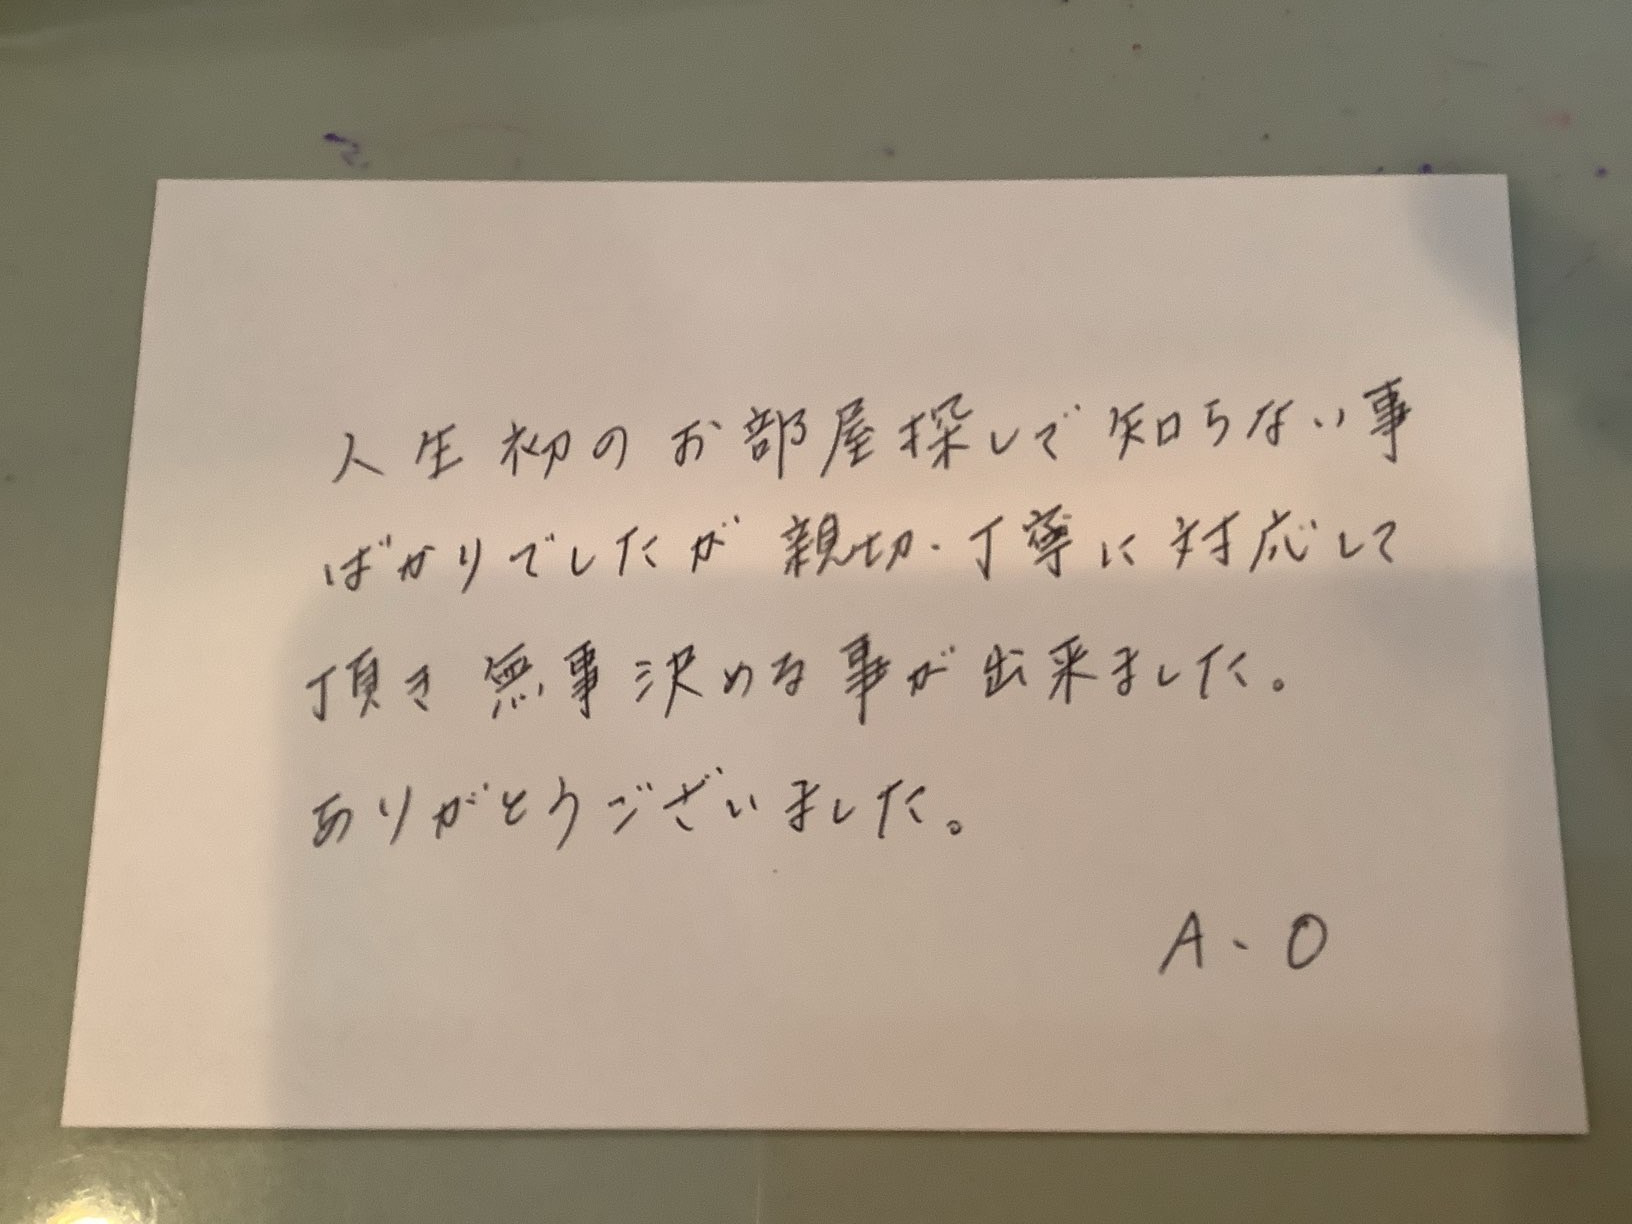 人生初のお部屋探しで知らない事
ばかりでしたが親切・丁寧に対応して
頂き無事決める事が出来ました。
ありがとうございました。
A、O